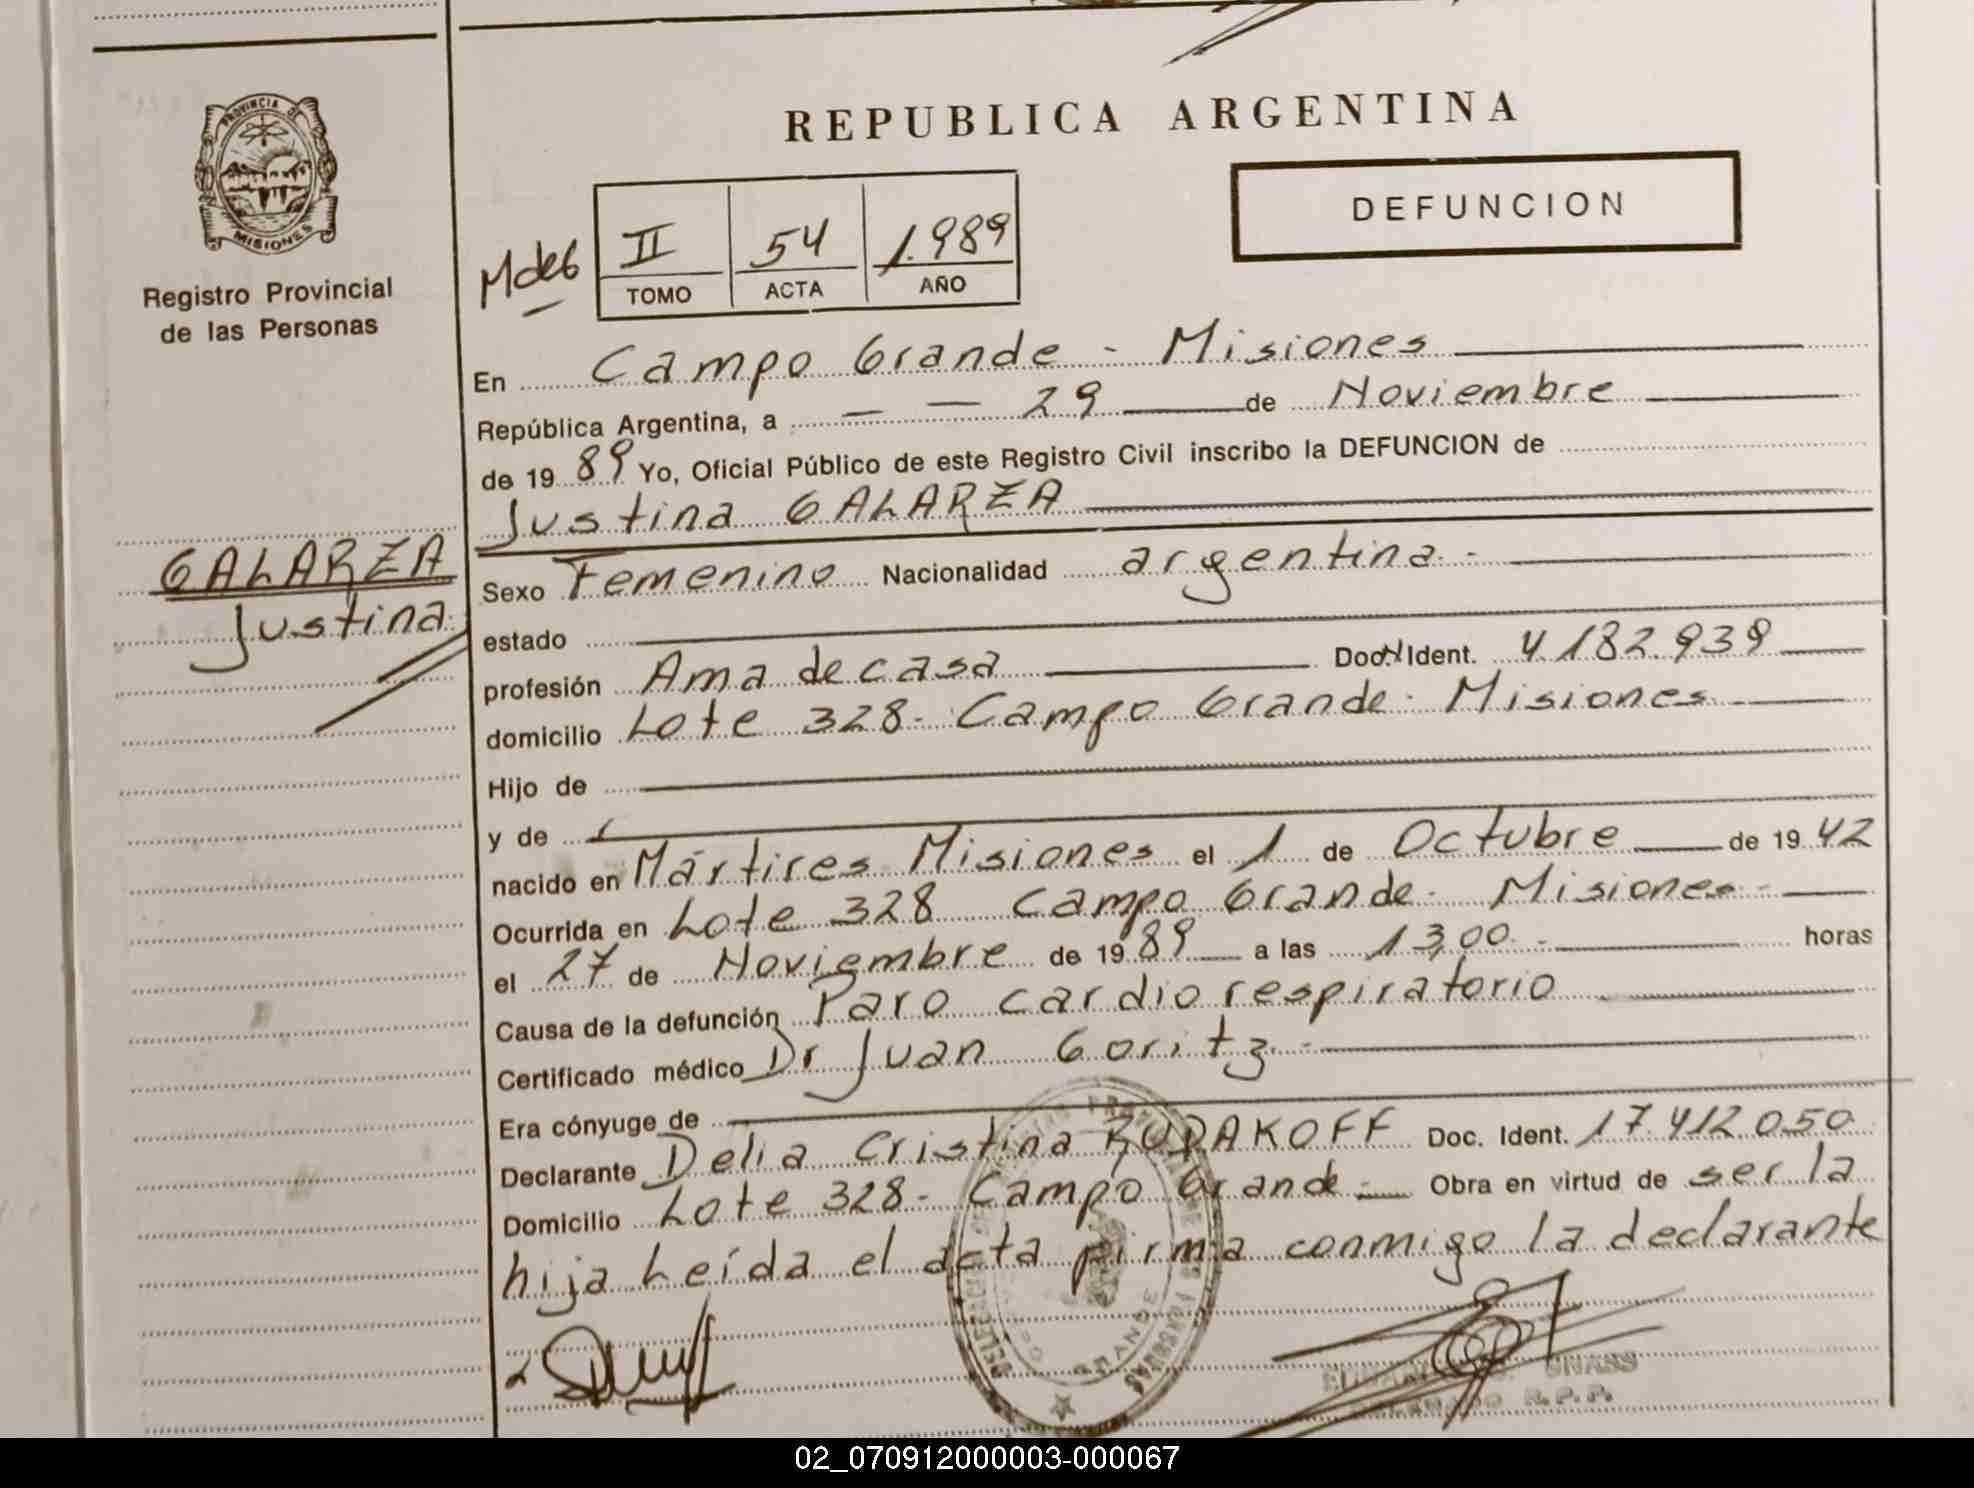 PROVINCIA DE
MISIONES
Registro Provincial
de las Personas
GALARZA
Justina
REPUBLICA ARGENTINA
DEFUNCION
II 54 1.989
TOMO ACTA AÑO
En Campo Grande - Misiones
República Argentina, a — — 29 de Noviembre
de 19 89 Yo, Oficial Público de este Registro Civil inscribo la DEFUNCION de
Justina GALARZA
Sexo Femenino Nacionalidad argentina.-
estado
profesión Ama de casa Doc. Ident. 4.182.939
domicilio Lote 328- Campo Grande- Misiones
Hijo de
y de
nacido en Mártires Misiones el 1 de Octubre de 19 42
Ocurrida en Lote 328 Campo Grande- Misiones-
el 27 de Noviembre de 19 89 a las 13,00.- horas
Causa de la defunción Paro cardiorespiratorio
Certificado médico Dr Juan Goritz.-
Era cónyuge de
Declarante Delia Cristina RUDAKOFF Doc. Ident. 17.412.050
Domicilio Lote 328- Campo Grande- Obra en virtud de ser la
hija Leída el acta firma conmigo la declarante
GRANDE
R.P.P.
02_070912000003-000067